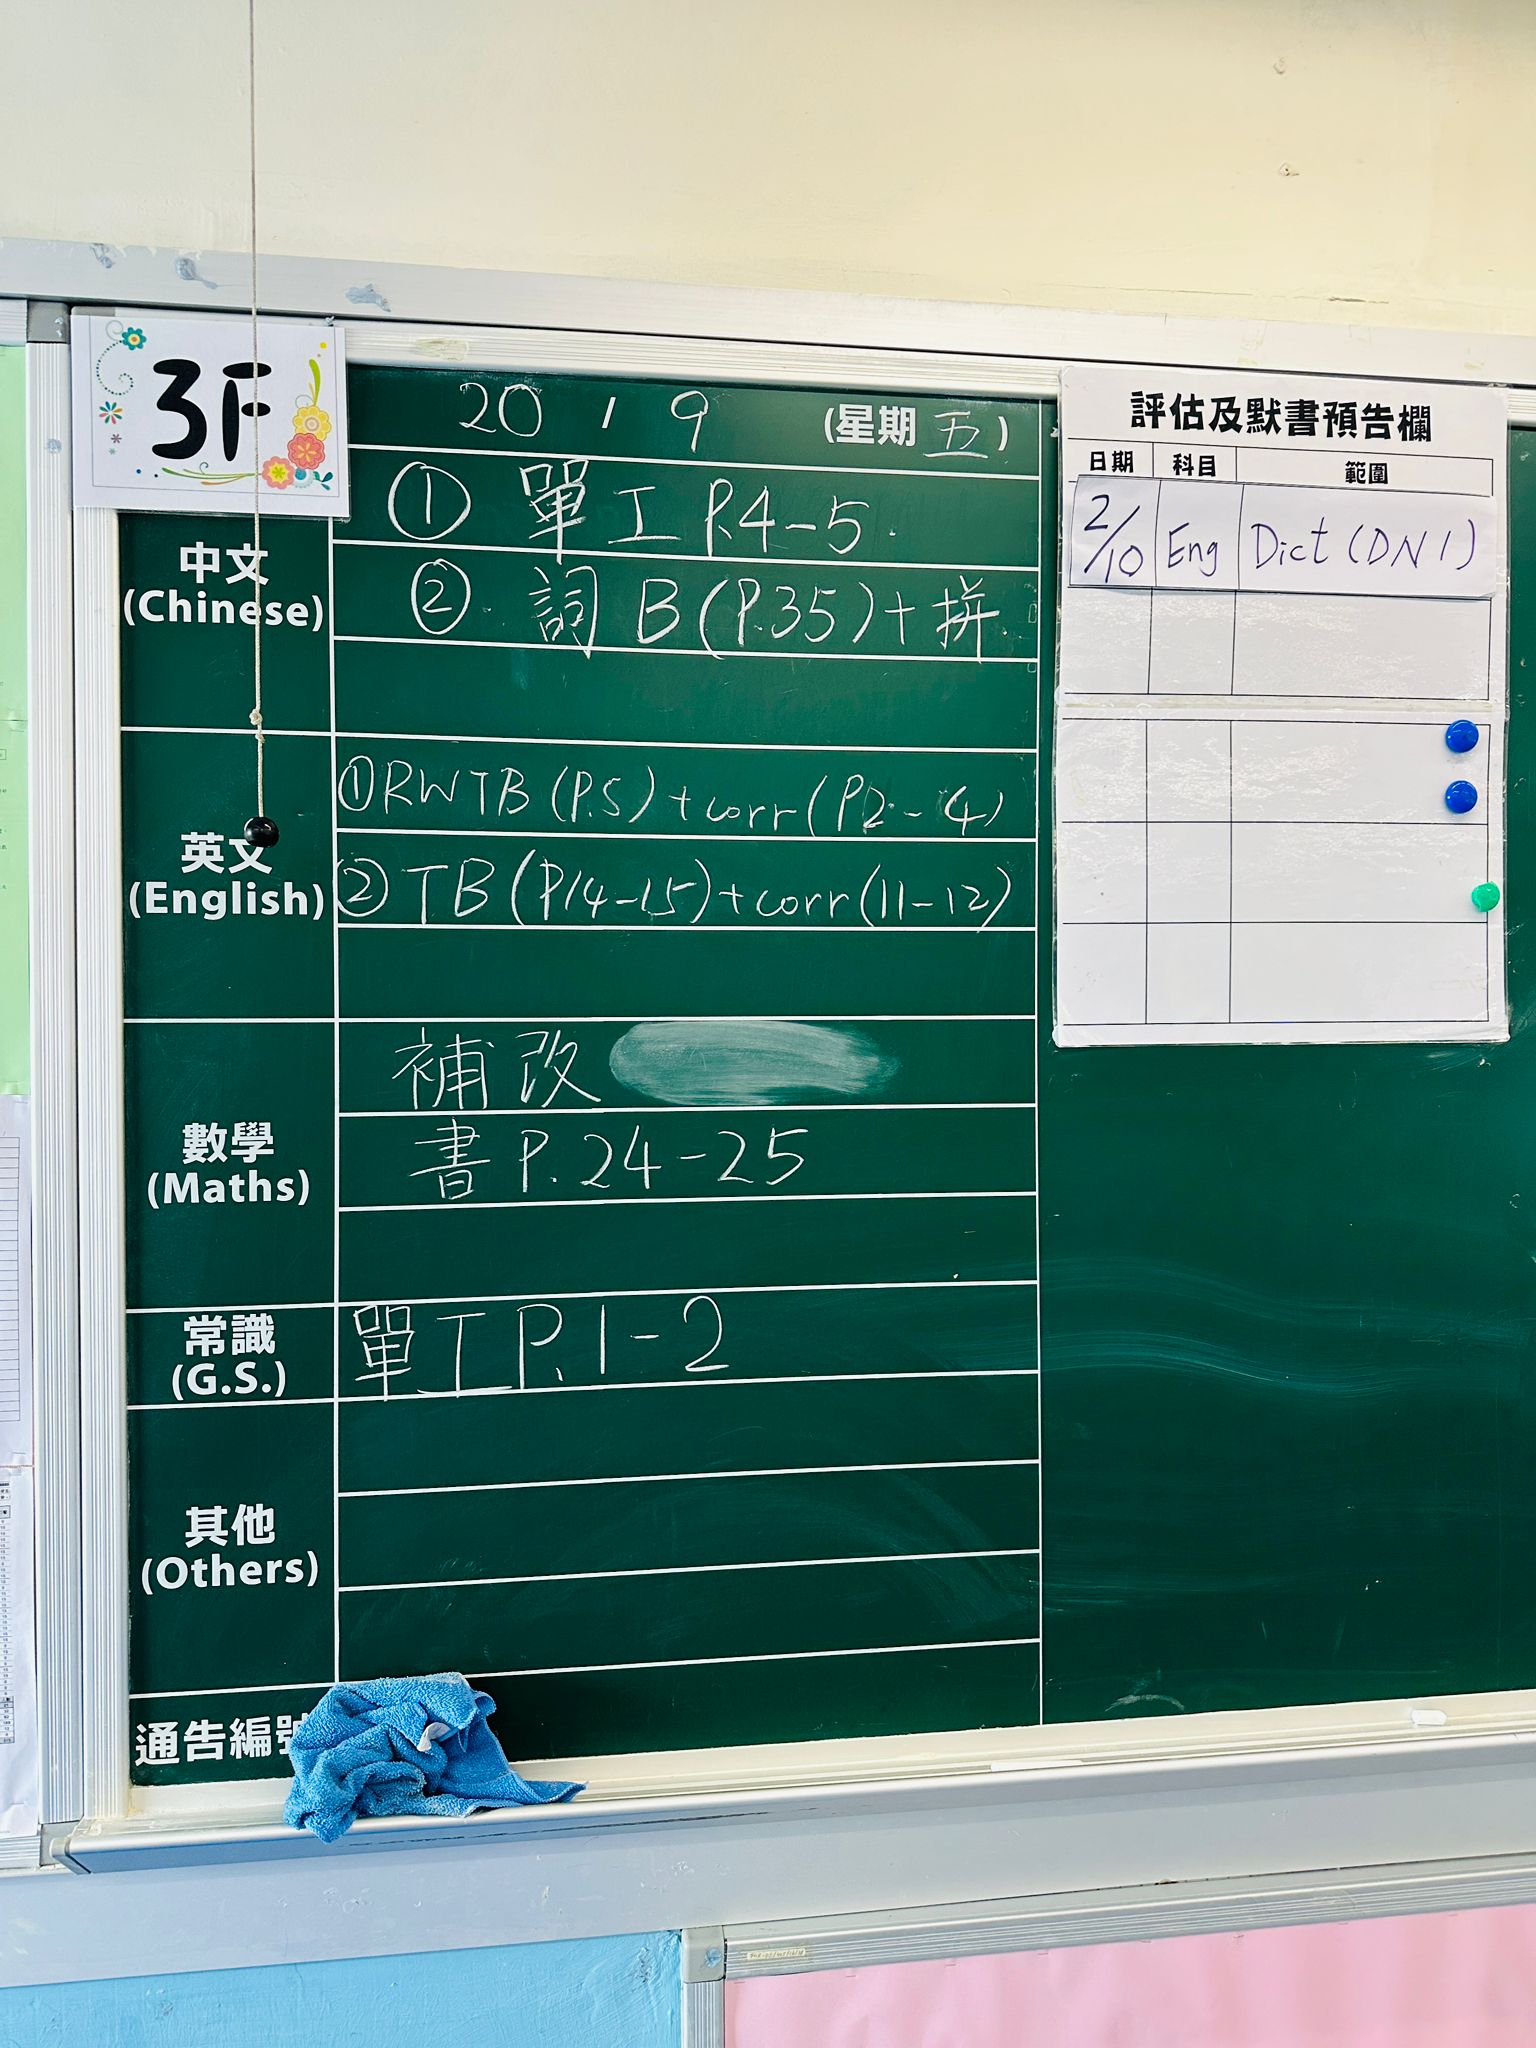 3F
20 / 9 (星期五)
中文
(Chinese)
① 單工 P.4-5.
② 詞B(P.35)+拼
英文
(English)
①RWTB(P.5)+corr(P2-4)
②TB(P.14-15)+corr(11-12)
數學
(Maths)
補改
書P.24-25
常識
(G.S.)
單工P.1-2
其他
(Others)
通告編號
評估及默書預告欄
日期 科目 範圍
2/10 Eng Dict(DN1)